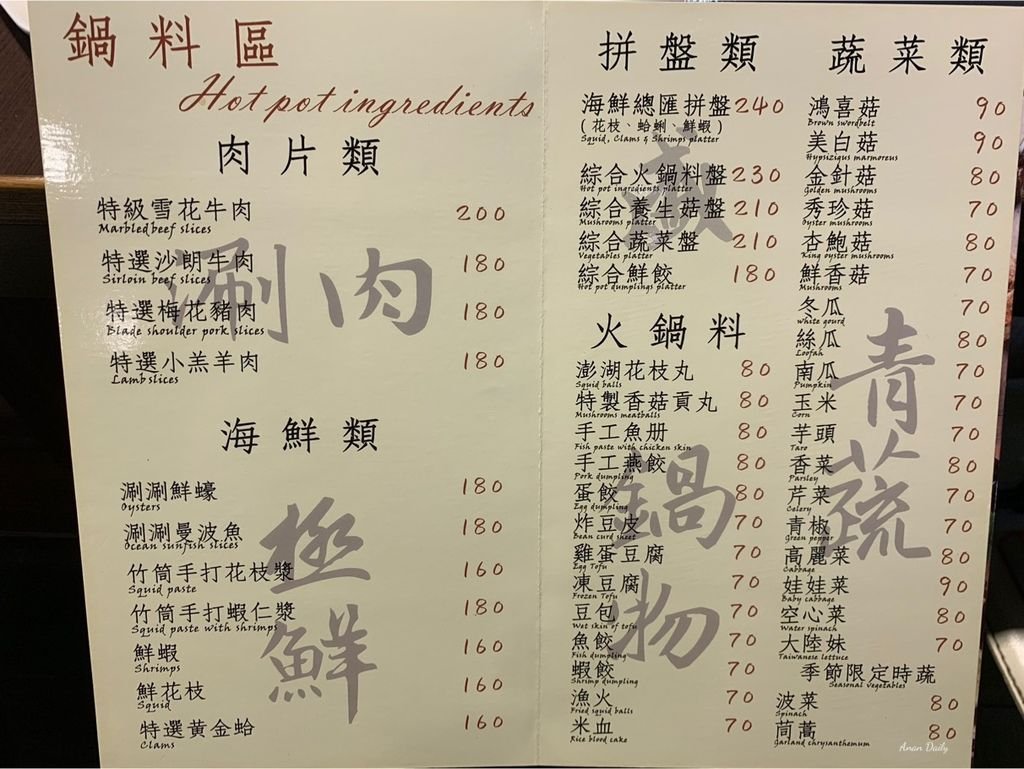 鍋料區
Hot pot ingredients
肉片類
特級雪花牛肉 200
Marbled beef slices
特選沙朗牛肉 180
Sirloin beef slices
特選梅花豬肉 180
Blade shoulder pork slices
特選小羔羊肉 180
Lamb slices
涮肉
海鮮類
涮涮鮮蠔 180
Oysters
涮涮曼波魚 180
Ocean sunfish slices
竹筒手打花枝漿 160
Squid paste
竹筒手打蝦仁漿 180
Squid paste with shrimps
鮮蝦 160
Shrimps
鮮花枝 160
Squid
特選黃金蛤 160
Clams
極鮮
拼盤類
海鮮總匯拼盤 240
(花枝、蛤蜊、鮮蝦)
Squid, Clams & Shrimps platter
綜合火鍋料盤 230
Hot pot ingredients platter
綜合養生菇盤 210
Mushrooms platter
綜合蔬菜盤 210
Vegetables platter
綜合鮮餃 180
Hot pot dumplings platter
盛
火鍋料
澎湖花枝丸 80
Squid balls
特製香菇貢丸 80
Mushrooms meatballs
手工魚册 80
Fish paste with chicken skin
手工燕餃 80
Pork dumpling
蛋餃 80
Egg dumpling
炸豆皮 70
Bean curd sheet
雞蛋豆腐 70
Egg Tofu
凍豆腐 70
Frozen Tofu
豆包 70
Wet skin of tofu
魚餃 70
Fish dumpling
蝦餃 70
Shrimp dumpling
漁火 70
Fried squid balls
米血 70
Rice blood cake
鍋物
蔬菜類
鴻喜菇 90
Brown swordbelt
美白菇 90
Hypsizigus marmoreus
金針菇 80
Golden mushrooms
秀珍菇 70
Oyster mushrooms
杏鮑菇 80
King oyster mushrooms
鮮香菇 70
Mushrooms
冬瓜 70
white gourd
絲瓜 80
Loofah
南瓜 70
Pumpkin
玉米 70
Corn
芋頭 70
Taro
香菜 80
Parsley
芹菜 70
Celery
青椒 70
Green pepper
高麗菜 80
Cabbage
娃娃菜 90
Baby cabbage
空心菜 80
Water spinach
大陸妹 70
Taiwanese lettuce
季節限定時蔬
Seasonal vegetables
波菜 80
Spinach
茼蒿 80
Garland chrysanthemum
青蔬
Anan Daily